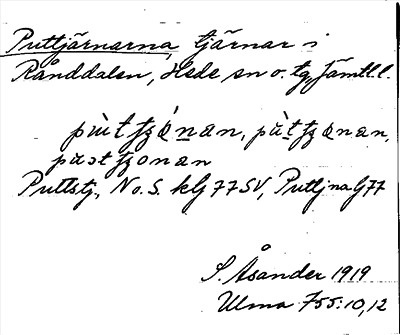 Puttjärnarna, tjärnar i
Rånddalen, Hede sn o. tg, Jämtl.l.
pùtʃʒónan, pùtʃʒonan,
pustʃʒonan
Puttstj., N o. S. kG77SV, Puttjna G77
S. Åsander 1919
Ulma 755:10,12